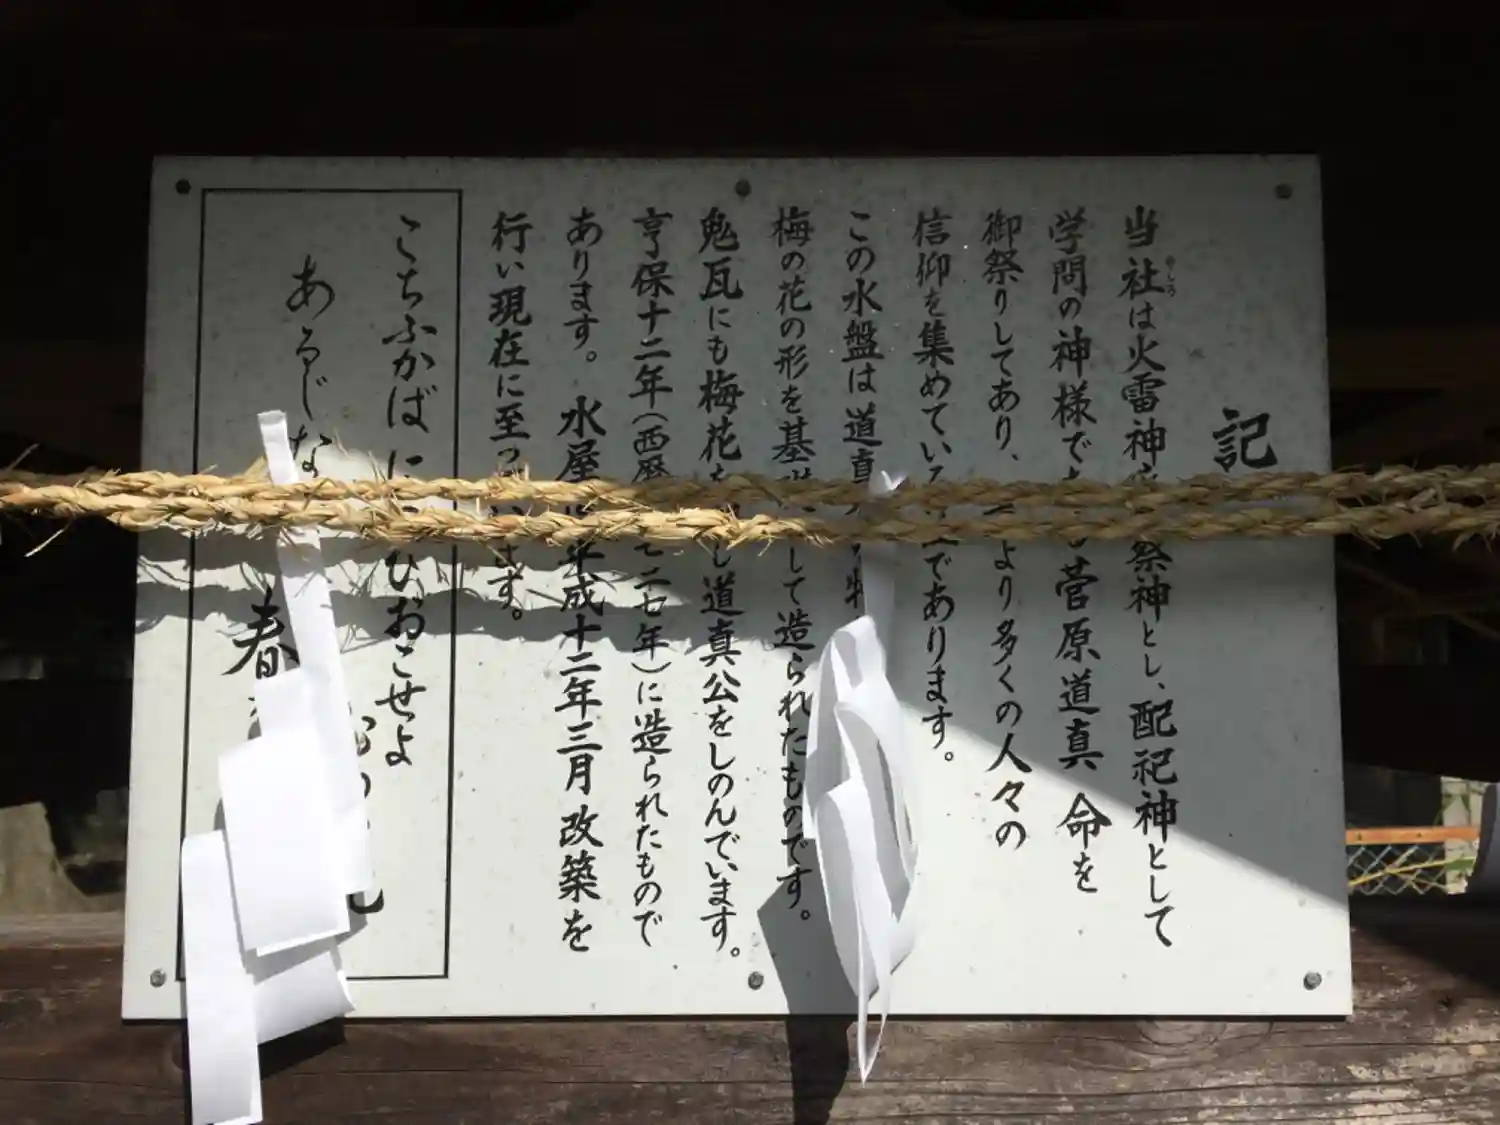 記
当社は火雷神 祭神とし、配祀神として
やしろ
学問の神様で 菅原道真 命を
御祭りしてあり、 より多くの人々の
信仰を集めている であります。
この水盤は道真
梅の花の形を基 して造られたものです。
鬼瓦にも梅花を し道真公をしのんでいます。
亨保十二年(西暦 二七年)に造られたもので
あります。水屋 平成十二年三月改築を
行い現在に至っ います。
こちふかばに ひおこせよ
あるじな
春